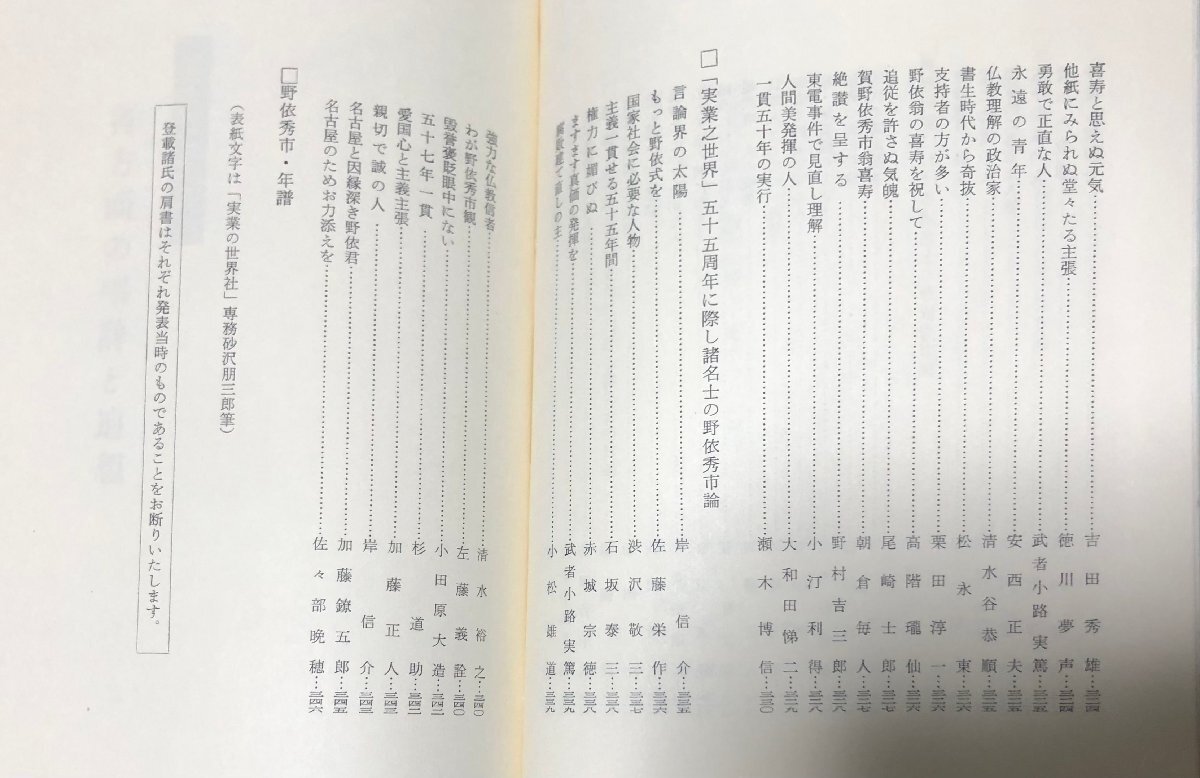 喜寿と思えぬ元気……吉田秀雄…三二四
他紙にみられぬ堂々たる主張……徳川夢声…三二四
勇敢で正直な人……武者小路実篤…三二五
永遠の青年……安西正夫…三二五
仏教理解の政治家……清水谷恭順…三二五
書生時代から奇抜……松永東…三二六
支持者の方が多い……栗田淳一…三二六
野依翁の喜寿を祝して……高階瓏仙…三二六
追従を許さぬ気魄……尾崎士郎…三二七
賀野依秀市翁喜寿……朝倉毎人…三二七
絶讃を呈する……野村吉三郎…三二八
東電事件で見直し理解……小汀利得…三二八
人間美発揮の人……大和田悌二…三二九
一貫五十年の実行……瀬木博信…三三〇
□「実業之世界」五十五周年に際し諸名士の野依秀市論
言論界の太陽……岸信介…三三五
もっと野依式を……佐藤栄作…三三六
国家社会に必要な人物……渋沢敬三…三三七
主義一貫せる五十五年間……石坂泰三…三三八
権力に媚びぬ……赤城宗徳…三三八
ますます真価の発揮を……武者小路実篤…三三九
腐敗建て直しの主……小松雄道…三三九
強力な仏教信者……清水裕之…三四〇
わが野依秀市観……左藤義詮…三四〇
毀誉褒貶眼中にない……小田原大造…三四二
五十七年一貫……杉道助…三四二
愛国心と主義主張……加藤正人…三四二
親切で誠の人……岸信介…三四三
名古屋と因縁深き野依君……加藤鐐五郎…三四五
名古屋のためお力添えを……佐々部晩穂…三四六
□野依秀市・年譜
（表紙文字は「実業の世界社」専務砂沢朋三郎筆）
登載諸氏の肩書はそれぞれ発表当時のものであることをお断りいたします。